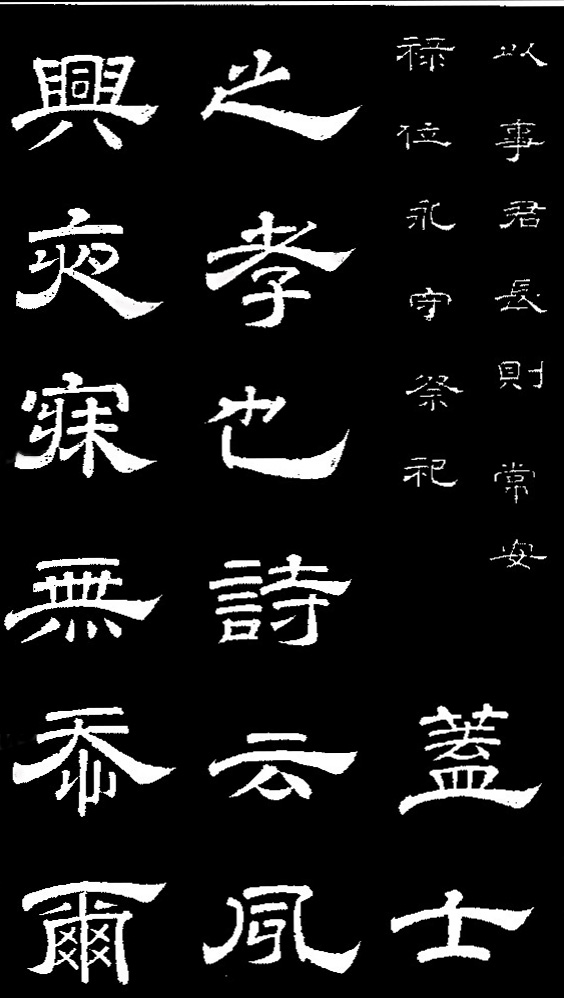 以事君長則常安
禄位永守祭祀
蓋士
之孝也詩云夙
興夜寐無忝爾